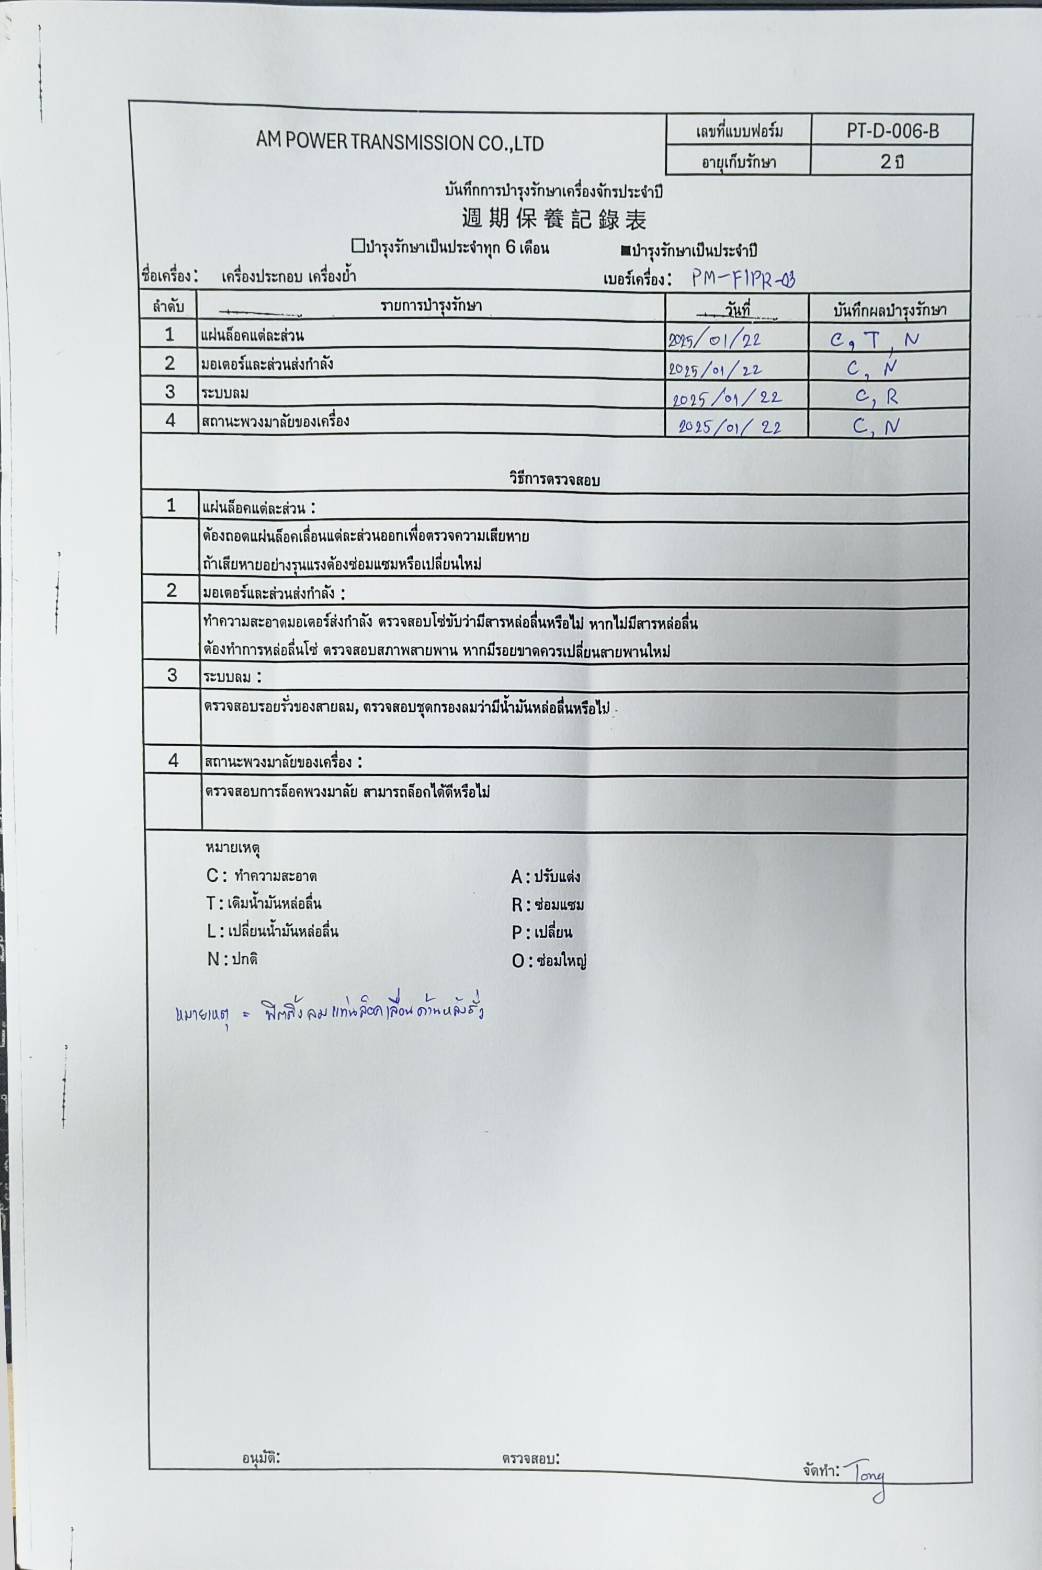 AM POWER TRANSMISSION CO.,LTD
เลขที่แบบฟอร์ม PT-D-006-B
อายุเก็บรักษา 2 ปี
บันทึกการบำรุงรักษาเครื่องจักรประจำปี
週期保養記錄表
☐บำรุงรักษาเป็นประจำทุก 6 เดือน ■บำรุงรักษาเป็นประจำปี
ชื่อเครื่อง: เครื่องประกอบ เครื่องย้ำ เบอร์เครื่อง: PM-FIPR-03
ลำดับ รายการบำรุงรักษา วันที่ บันทึกผลบำรุงรักษา
1 แผ่นล็อคแต่ละส่วน 2025/01/22 C, T, N
2 มอเตอร์และส่วนส่งกำลัง 2025/01/22 C, N
3 ระบบลม 2025/01/22 C, R
4 สถานะพวงมาลัยของเครื่อง 2025/01/22 C, N
วิธีการตรวจสอบ
1 แผ่นล็อคแต่ละส่วน :
ต้องถอดแผ่นล็อคเลื่อนแต่ละส่วนออกเพื่อตรวจความเสียหาย
ถ้าเสียหายอย่างรุนแรงต้องซ่อมแซมหรือเปลี่ยนใหม่
2 มอเตอร์และส่วนส่งกำลัง :
ทำความสะอาดมอเตอร์ส่งกำลัง ตรวจสอบโซ่ขับว่ามีสารหล่อลื่นหรือไม่ หากไม่มีสารหล่อลื่น
ต้องทำการหล่อลื่นโซ่ ตรวจสอบสภาพสายพาน หากมีรอยขาดควรเปลี่ยนสายพานใหม่
3 ระบบลม :
ตรวจสอบรอยรั่วของสายลม, ตรวจสอบชุดกรองลมว่ามีน้ำมันหล่อลื่นหรือไม่
4 สถานะพวงมาลัยของเครื่อง :
ตรวจสอบการล็อคพวงมาลัย สามารถล็อกได้ดีหรือไม่
หมายเหตุ
C : ทำความสะอาด A : ปรับแต่ง
T : เติมน้ำมันหล่อลื่น R : ซ่อมแซม
L : เปลี่ยนน้ำมันหล่อลื่น P : เปลี่ยน
N : ปกติ O : ซ่อมใหญ่
หมายเหตุ = ฟิตติ้งลมแท่นล็อคเลื่อนด้านหลังรั่ว
อนุมัติ: ตรวจสอบ: จัดทำ: Tong